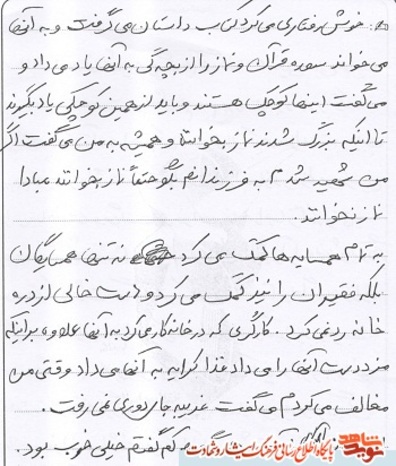 خوش رفتاری می کرد کتاب داستان می گرفت و به آنها
می خواند سوره قرآن و نماز را از بچه گی به آنها یاد می داد و
می گفت اینها کوچک هستند و باید از همین کوچکی یاد بگیرند
تا اینکه بزرگ شدند نماز بخوانند و همیشه به من می گفت اگر
من شهید شدم به فرزندانم بگو حتماً نماز بخوانند مبادا
نماز نخوانند.
به تمام همسایه ها کمک می کرد نه تنها همسایگان
بلکه فقیران را نیز کمک می کرد و دست خالی از در
خانه رد نمی کرد. کارگری که در خانه کار می کرد به آنها علاوه بر اینکه
مزد دست آنها را می داد غذا کرایه به آنها می داد وقتی من
مخالفت می کردم می گفت غریبه جای دوری نمی رفت.
گفتم خیلی خوب بود.
نوید شاهد
پایگاه اطلاع رسانی فرهنگ ایثار و شهادت